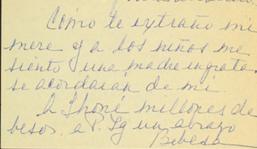 Como te extraño mi
mere y a los niños me
siento una madre ingrata
se acordaran de mi
a Ihoni millones de
besos. a P. Ig un abrazo